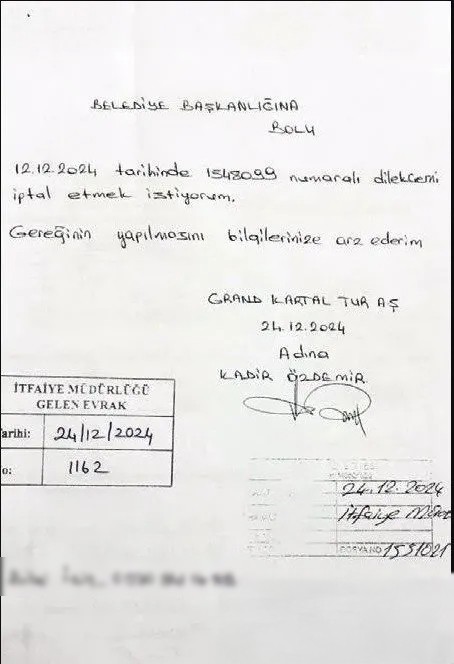 BELEDİYE BAŞKANLIĞINA
BOLU
12.12.2024 tarihinde 1548099 numaralı dilekçemi
iptal etmek istiyorum.
Gereğinin yapılmasını bilgilerinize arz ederim
GRAND KARTAL TUR AŞ
24.12.2024
Adına
KADİR ÖZDEMİR
İTFAİYE MÜDÜRLÜĞÜ
GELEN EVRAK
arihi: 24/12/2024
o: 1162
24.12.2024
İtfaiye Müd
DOSYA NO 1551021